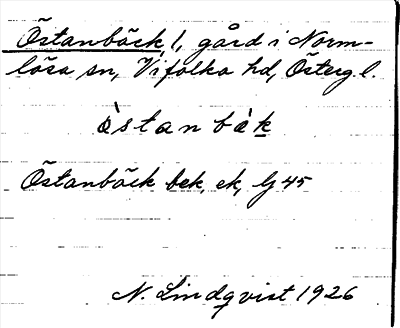 Östanbäck, 1, gård i Norm-
lösa sn, Vifolka hd, Österg. l.
òstanbàk
Östanbäck bek, ek, Gj 45
N. Lindqvist 1926